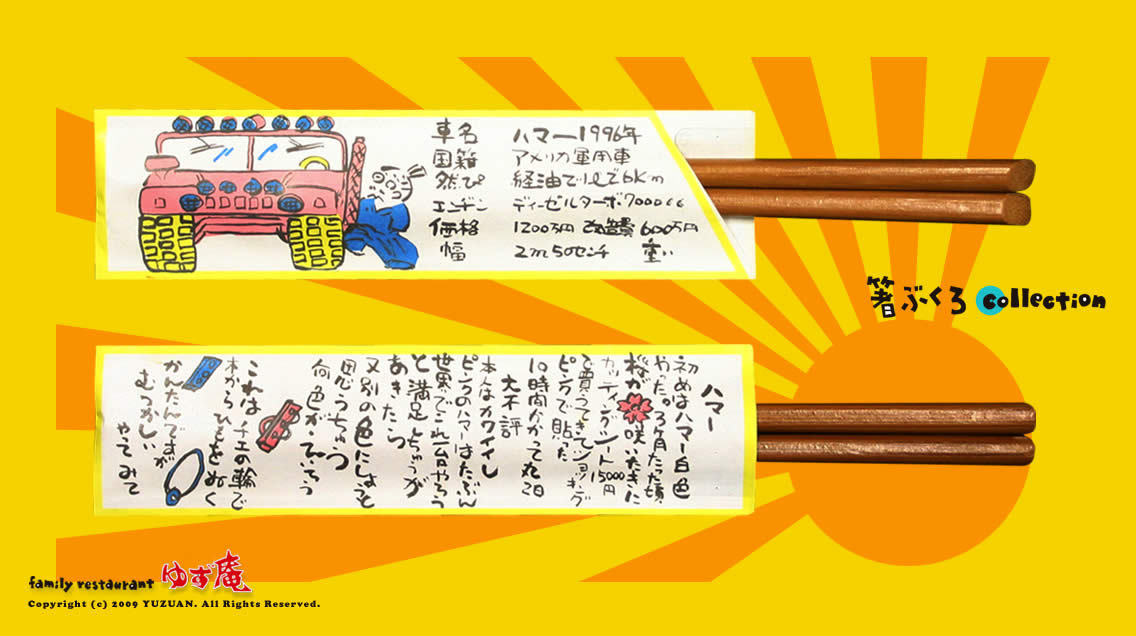 車名 ハマー1996年
国籍 アメリカ軍用車
然ぴ 経油で1ℓで6Km
エンヂン ディーゼルターボ7000cc
価格 1200万円 改造費 600万円
幅 2m50センチ 重い
箸ぶくろ collection
ハマー
初めはハマー白色
やった。3ヶ月たった頃
桜が咲いたきに
カッティングシート15000円
で買ってきてショッキング
ピンクで貼った
10時間かかって丸2日
大不評
本人はカワイイし
ピンクのハマーはたぶん
世界でこれ一台やろう
と満足しちゅうが
あきたら
又別の色にしよっと
思うちゅう
何色がえいろう
これはチエの輪で
本からひもをぬく
かんたんですが
むつかしい
やってみて
family restaurant ゆず庵
Copyright (c) 2009 YUZUAN. All Rights Reserved.